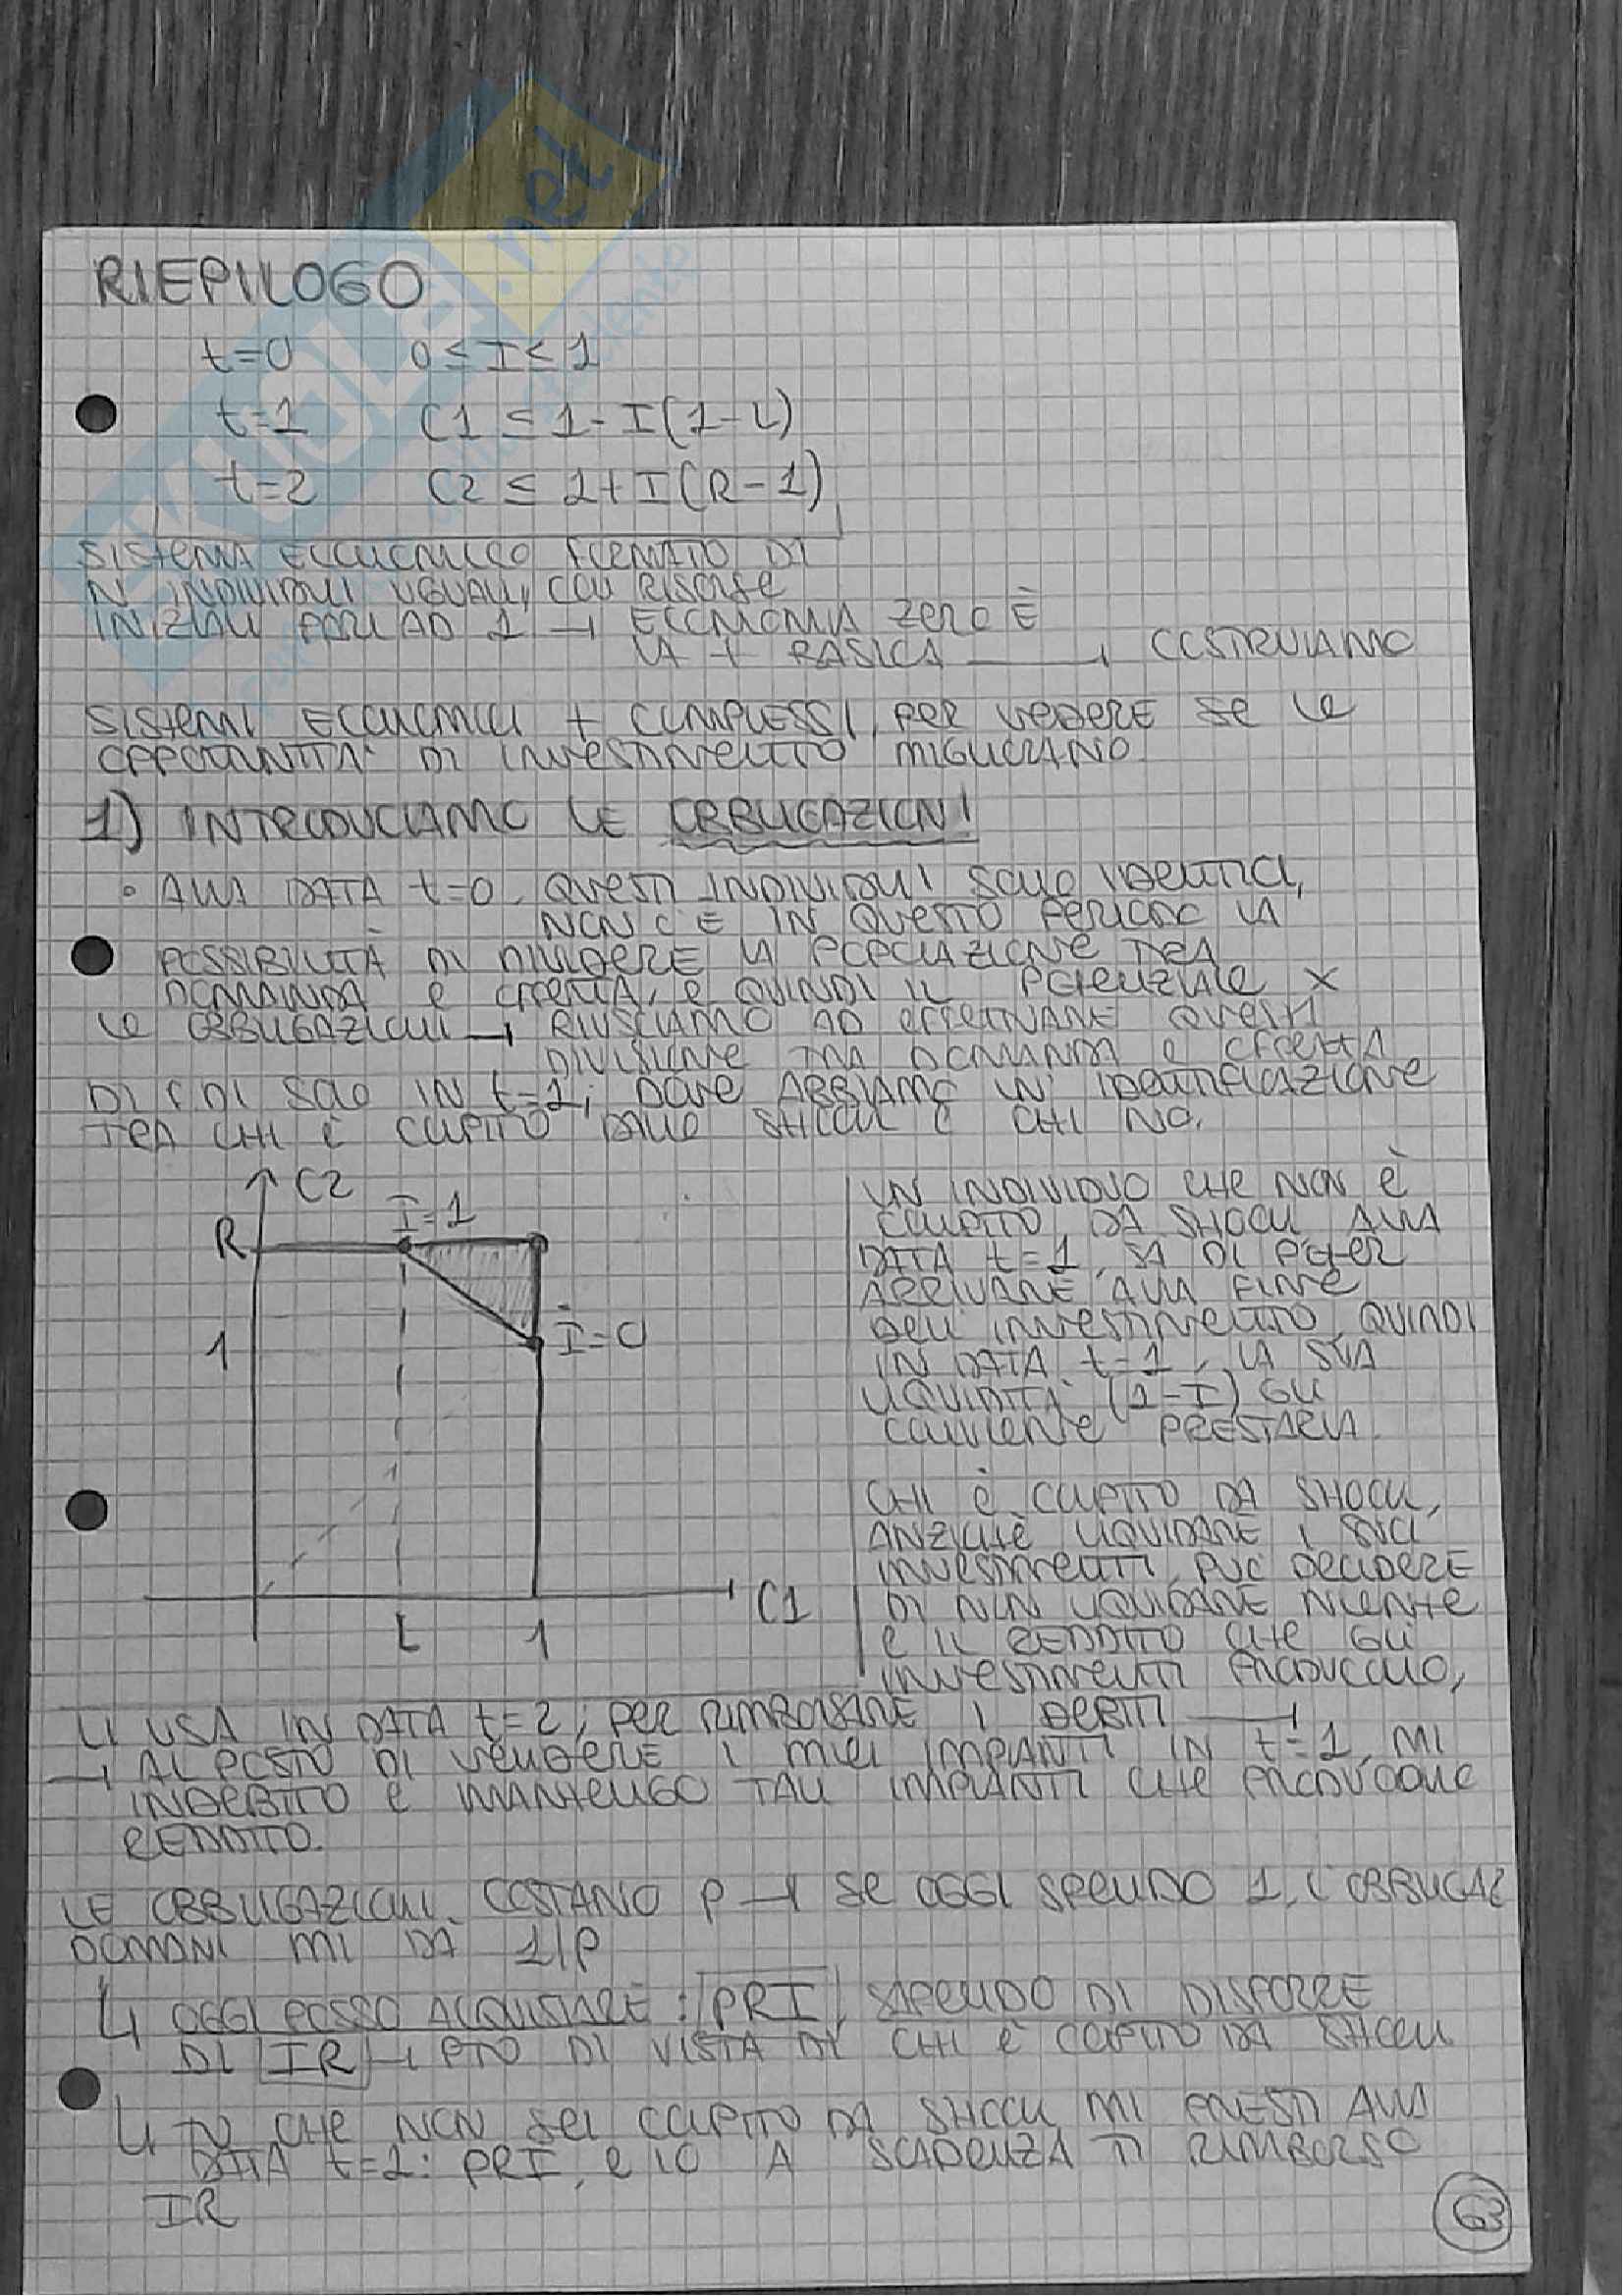 RIEPILOGO
t=0 0≤I≤1
t=1 C1 ≤ 1-I(1-L)
t=2 C2 ≤ 1+I(R-1)
SISTEMA ECONOMICO FORMATO DA
N INDIVIDUI UGUALI, CON RISORSE
INIZIALI PARI AD 1 → ECONOMIA ZERO È
LA + BASICA → COSTRUIAMO
SISTEMI ECONOMICI + COMPLESSI, PER VEDERE SE LE
OPPORTUNITA' DI INVESTIMENTO MIGLIORANO
1) INTRODUCIAMO LE OBBLIGAZIONI
• ALLA DATA t=0, QUESTI INDIVIDUI SONO IDENTICI,
NON C'È IN QUESTO PERIODO LA
POSSIBILITÀ DI DIVIDERE LA POPOLAZIONE TRA
DOMANDA E OFFERTA, E QUINDI IL POTENZIALE X
LE OBBLIGAZIONI → RIUSCIAMO AD EFFETTUARE QUESTA
DIVISIONE TRA DOMANDA E OFFERTA
DI SOLO IN t=1, DOVE ABBIAMO UN' IDENTIFICAZIONE
TRA CHI È COLPITO DALLO SHOCK E CHI NO.
C2
I=1
R
1
I=0
L 1 C1
UN INDIVIDUO CHE NON È
COLPITO DA SHOCK ALLA
DATA t=1, SA DI POTER
ARRIVARE ALLA FINE
DELL'INVESTIMENTO, QUINDI
IN DATA t=1, LA SUA
LIQUIDITÀ (1-I) GLI
CONVIENE PRESTARLA.
CHI È COLPITO DA SHOCK,
ANZICHÈ LIQUIDARE I SUOI
INVESTIMENTI, PUÒ DECIDERE
DI NON LIQUIDARE NIENTE
E IL REDDITO CHE GLI
INVESTIMENTI PRODUCONO,
LI USA IN DATA t=2, PER RIMBORSARE I DEBITI →
→ AL POSTO DI VENDERE I MIEI IMPIANTI IN t=1, MI
INDEBITO E MANTENGO TALI IMPIANTI CHE PRODUCONO
REDDITO.
LE OBBLIGAZIONI COSTANO P → SE OGGI SPENDO 1, L'OBBLIGAZ
DOMANI MI DA 1/P
↳ OGGI POSSO ACQUISTARE: PRI, SAPENDO DI DISPORRE
DI IR → PTO DI VISTA DI CHI È COLPITO DA SHOCK
↳ TU CHE NON SEI COLPITO DA SHOCK MI PRESTI ALLA
DATA t=1: PRI, E IO A SCADENZA TI RIMBORSO
IR
63